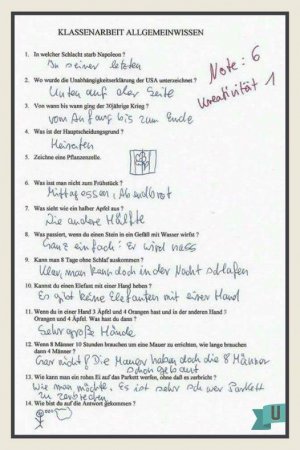 KLASSENARBEIT ALLGEMEINWISSEN
1. In welcher Schlacht starb Napoleon ?
In seiner letzten
Note: 6
2. Wo wurde die Unabhängigkeitserklärung der USA unterzeichnet ?
Unten auf der Seite
Kreativität 1
3. Von wann bis wann ging der 30jährige Krieg ?
vom Anfang bis zum Ende
4. Was ist der Hauptscheidungsgrund ?
Heiraten
5. Zeichne eine Pflanzenzelle.
6. Was isst man nicht zum Frühstück ?
Mittagessen, Abendbrot
7. Was sieht wie ein halber Apfel aus ?
Die andere Hälfte
8. Was passiert, wenn du einen Stein in ein Gefäß mit Wasser wirfst ?
Ganz einfach: Er wird nass
9. Kann man 8 Tage ohne Schlaf auskommen ?
Klar, man kann doch in der Nacht schlafen
10. Kannst du einen Elefant mit einer Hand heben ?
Es gibt keine Elefanten mit einer Hand
11. Wenn du in einer Hand 3 Äpfel und 4 Orangen hast und in der anderen Hand 3
Orangen und 4 Äpfel. Was hast du dann ?
Sehr große Hände
12. Wenn 8 Männer 10 Stunden brauchen um eine Mauer zu errichten, wie lange brauchen
dann 4 Männer ?
Gar nicht! Die Mauer haben doch die 8 Männer
schon gebaut
13. Wie kann man ein rohes Ei auf das Parkett werfen, ohne daß es zerbricht ?
Wie man möchte. Es ist sehr schwer Parkett
zu zerbrechen
14. Wie bist du auf die Antwort gekommen ?
U